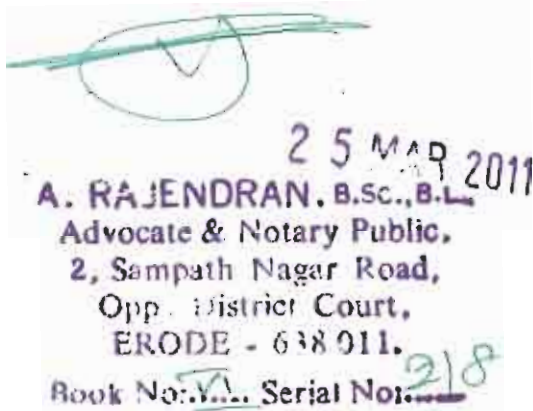 25 MAR 2011
A. RAJENDRAN. B.Sc., B.L.
Advocate & Notary Public,
2, Sampath Nagar Road,
Opp. District Court,
ERODE - 638 011.
Book No:.VI.... Serial No:..218